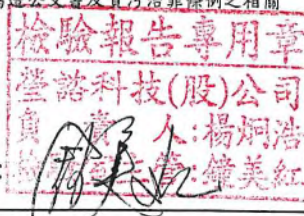 造公文書及貪污治罪條例之相關
檢驗報告專用章
瑩諮科技(股)公司
負責人:楊炯浩
鐘美紅